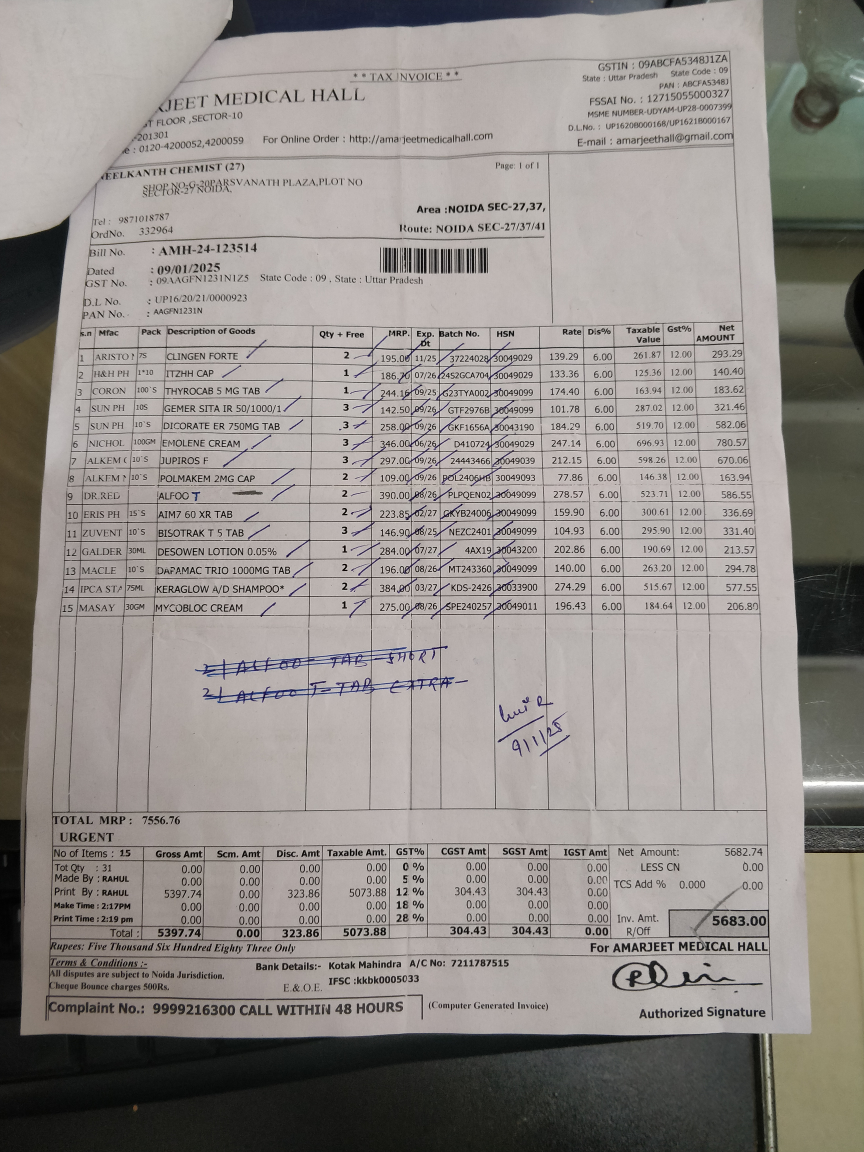 ** TAX INVOICE **
GSTIN : 09ABCFA5348J1ZA
State : Uttar Pradesh State Code : 09
PAN : ABCFA5348J
FSSAI No. : 12715055000327
MSME NUMBER-UDYAM-UP28-0007399
D.L.No. : UP16208000168/UP16218000167
E-mail : amarjeethall@gmail.com
RJEET MEDICAL HALL
FLOOR ,SECTOR-10
-201301
: 0120-4200052,4200059 For Online Order : http://amarjeetmedicalhall.com
EELKANTH CHEMIST (27) Page: 1 of 1
SHOP NO-G-20PARSVANATH PLAZA,PLOT NO
SECTOR-27 NOIDA,
Tel : 9871018787 Area :NOIDA SEC-27,37,
OrdNo. 332964 Route: NOIDA SEC-27/37/41
Bill No. : AMH-24-123514
Dated : 09/01/2025
GST No. : 09AAGFN1231N1Z5 State Code : 09 , State : Uttar Pradesh
D.L No. : UP16/20/21/0000923
PAN No. : AAGFN1231N
s.n Mfac Pack Description of Goods Qty + Free MRP. Exp. Dt Batch No. HSN Rate Dis% Taxable Value Gst% Net AMOUNT
1 ARISTO 7S CLINGEN FORTE 2 195.00 11/25 37224028 30049029 139.29 6.00 261.87 12.00 293.29
2 H&H PH 1*10 ITZHH CAP 1 186.70 07/26 2452GCA704 30049029 133.36 6.00 125.36 12.00 140.40
3 CORON 100`S THYROCAB 5 MG TAB 1 244.16 09/25 G23TYA002 30049099 174.40 6.00 163.94 12.00 183.62
4 SUN PH 10S GEMER SITA IR 50/1000/1 3 142.50 09/26 GTF2976B 30049099 101.78 6.00 287.02 12.00 321.46
5 SUN PH 10`S DICORATE ER 750MG TAB 3 258.00 09/26 GKF1656A 30043190 184.29 6.00 519.70 12.00 582.06
6 NICHOL 100GM EMOLENE CREAM 3 346.00 06/26 D410724 30049029 247.14 6.00 696.93 12.00 780.57
7 ALKEM ( 10`S JUPIROS F 3 297.00 09/26 24443466 30049039 212.15 6.00 598.26 12.00 670.06
8 ALKEM 10`S POLMAKEM 2MG CAP 2 109.00 09/26 POL2406HB 30049093 77.86 6.00 146.38 12.00 163.94
9 DR.RED ALFOO T 2 390.00 08/26 PLPQEN02 30049099 278.57 6.00 523.71 12.00 586.55
10 ERIS PH 15`S AIM7 60 XR TAB 2 223.85 02/27 GKYB24006 30049099 159.90 6.00 300.61 12.00 336.69
11 ZUVENT 10`S BISOTRAK T 5 TAB 3 146.90 08/25 NEZC2401 30049099 104.93 6.00 295.90 12.00 331.40
12 GALDER 30ML DESOWEN LOTION 0.05% 1 284.00 07/27 4AX19 30043200 202.86 6.00 190.69 12.00 213.57
13 MACLE 10`S DAPAMAC TRIO 1000MG TAB 2 196.00 08/26 MT243360 30049099 140.00 6.00 263.20 12.00 294.78
14 IPCA STA 75ML KERAGLOW A/D SHAMPOO* 2 384.00 03/27 KDS-2426 30033900 274.29 6.00 515.67 12.00 577.55
15 MASAY 30GM MYCOBLOC CREAM 1 275.00 08/26 SPE240257 30049011 196.43 6.00 184.64 12.00 206.80
2| ALFOO - TAB - SHORT
2| ALFOO T- TAB EXTRA -
9/1/25
TOTAL MRP : 7556.76
URGENT
No of Items : 15 Gross Amt Scm. Amt Disc. Amt Taxable Amt. GST% CGST Amt SGST Amt IGST Amt Net Amount: 5682.74
Tot Qty : 31 0.00 0.00 0.00 0.00 0 % 0.00 0.00 0.00 LESS CN 0.00
Made By : RAHUL 0.00 0.00 0.00 0.00 5 % 0.00 0.00 0.00 TCS Add % 0.000 0.00
Print By : RAHUL 5397.74 0.00 323.86 5073.88 12 % 304.43 304.43 0.00
Make Time : 2:17PM 0.00 0.00 0.00 0.00 18 % 0.00 0.00 0.00
Print Time : 2:19 pm 0.00 0.00 0.00 0.00 28 % 0.00 0.00 0.00 Inv. Amt. 5683.00
Total : 5397.74 0.00 323.86 5073.88 304.43 304.43 0.00 R/Off
Rupees: Five Thousand Six Hundred Eighty Three Only For AMARJEET MEDICAL HALL
Terms & Conditions :- Bank Details:- Kotak Mahindra A/C No: 7211787515
All disputes are subject to Noida Jurisdiction. IFSC :kkbk0005033
Cheque Bounce charges 500Rs. E.& O.E.
Complaint No.: 9999216300 CALL WITHIN 48 HOURS (Computer Generated Invoice) Authorized Signature